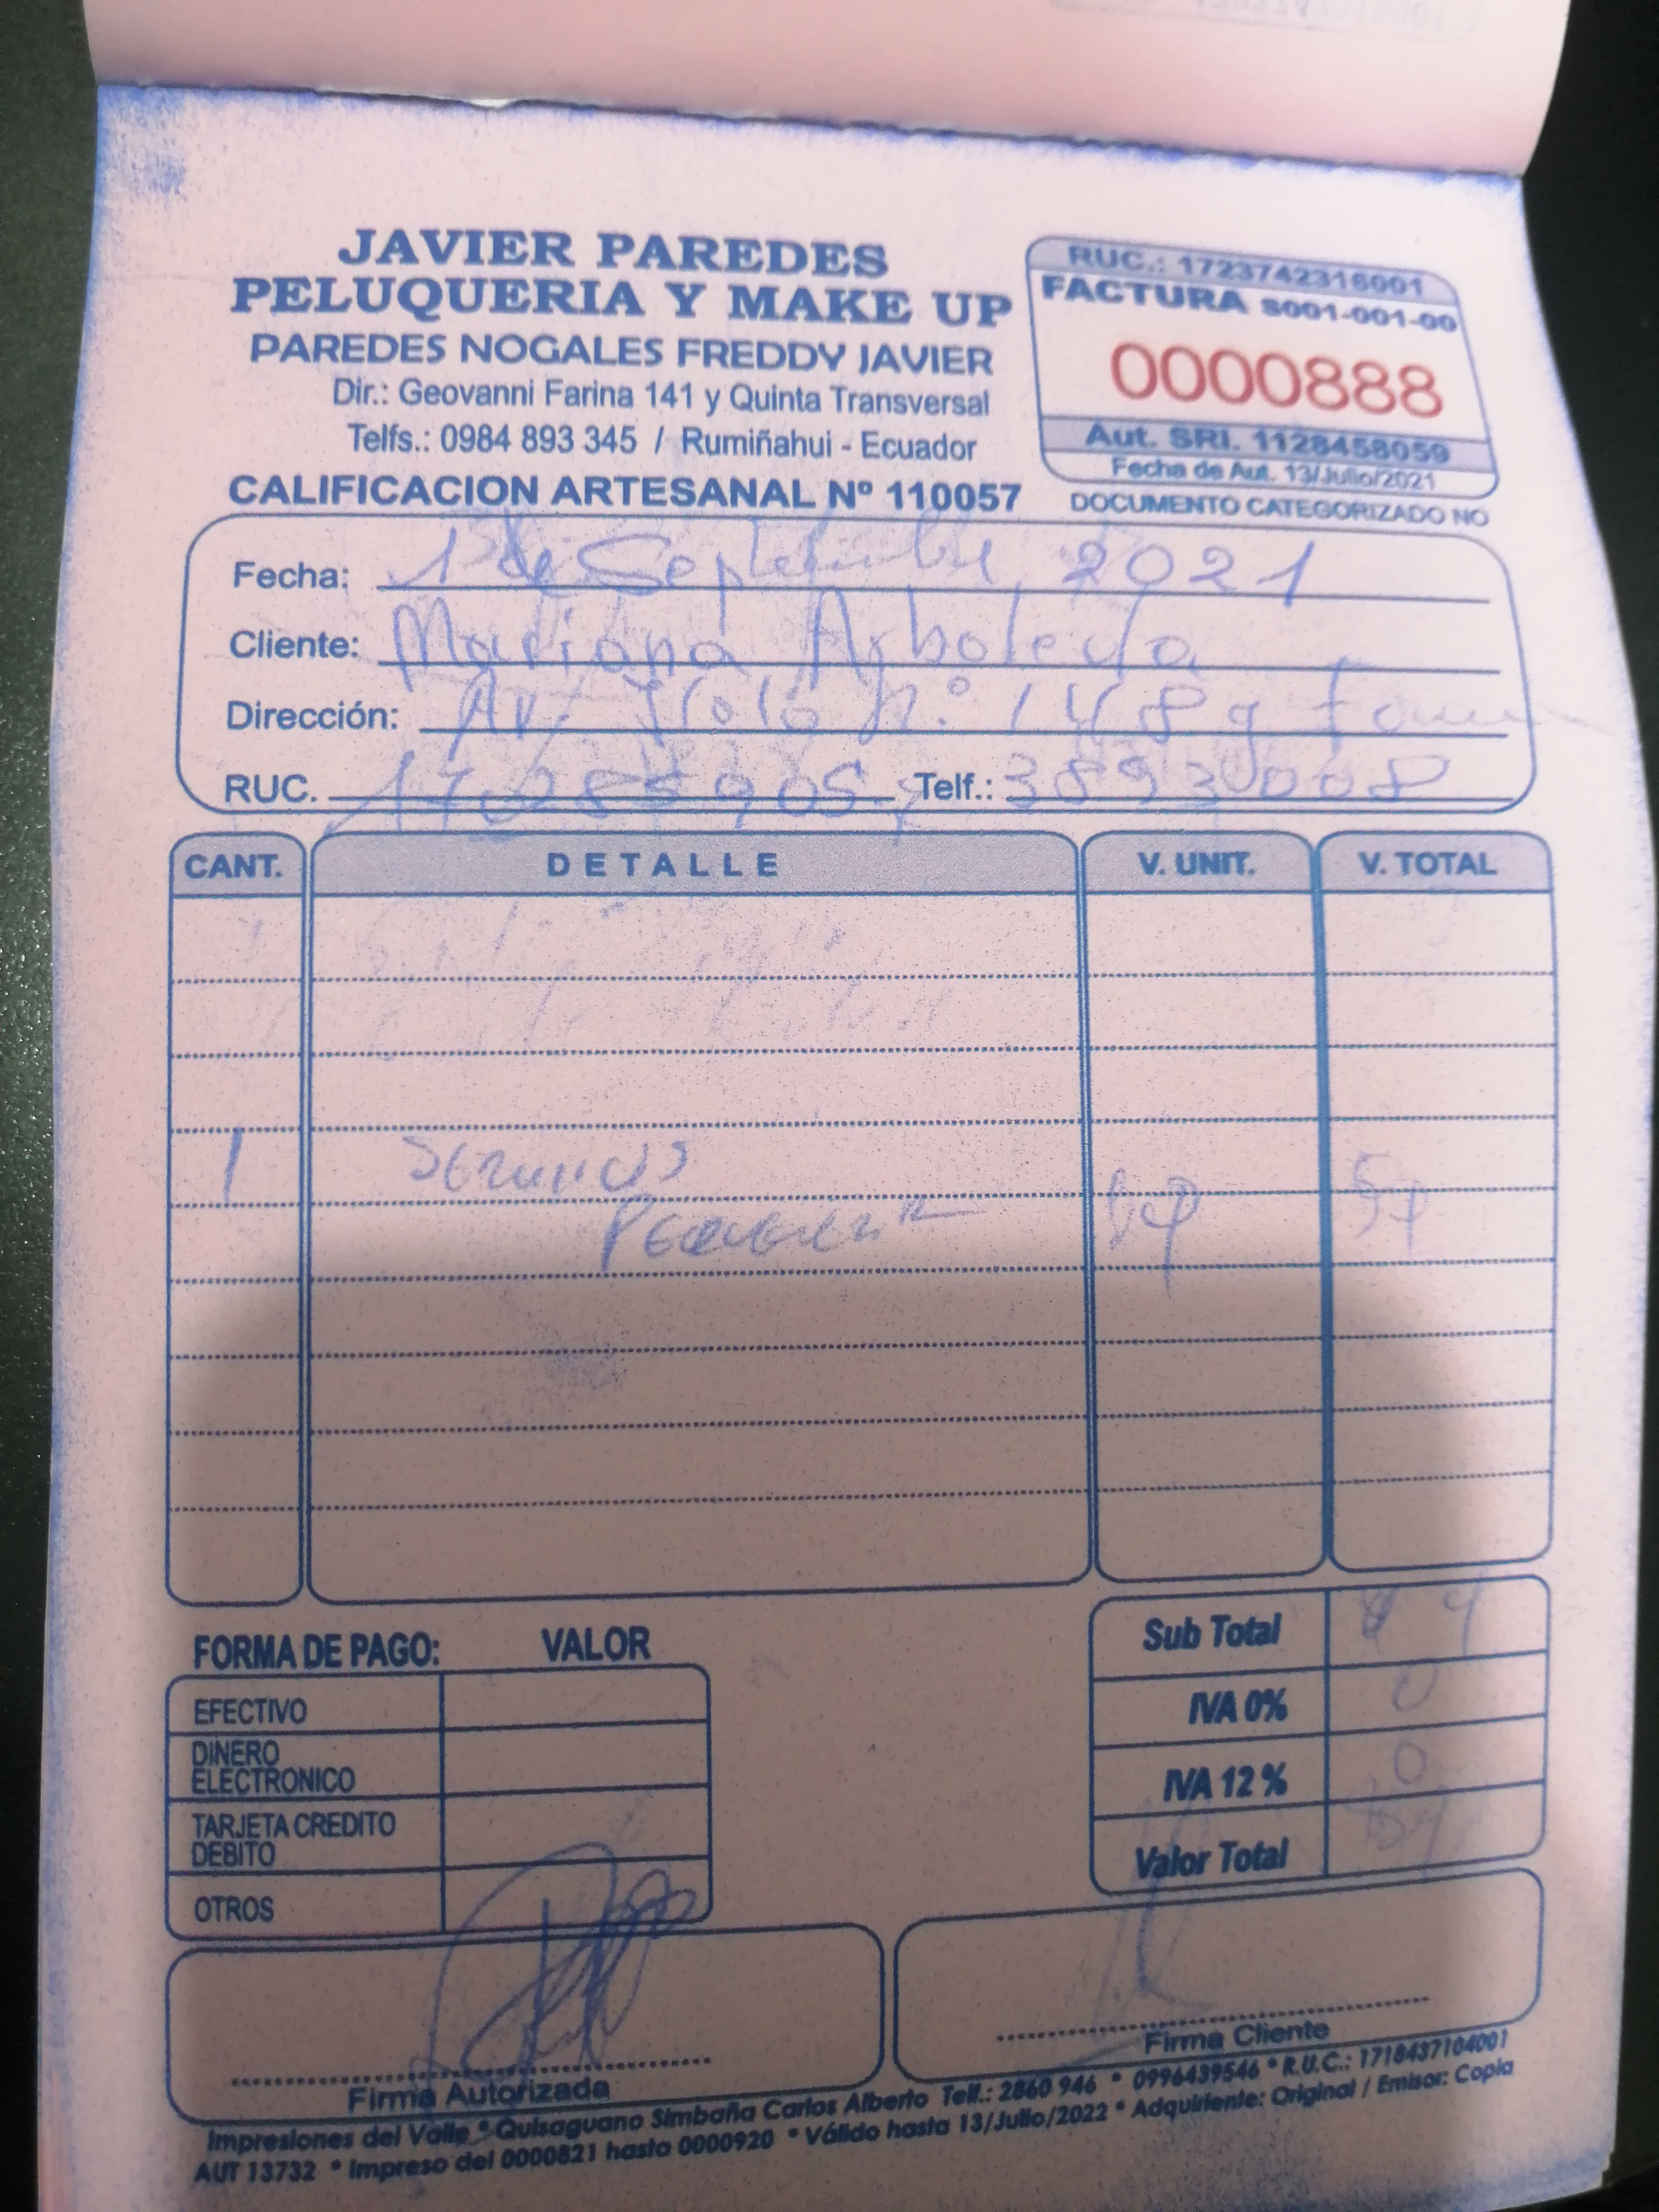 JAVIER PAREDES
PELUQUERIA Y MAKE UP
PAREDES NOGALES FREDDY JAVIER
Dir.: Geovanni Farina 141 y Quinta Transversal
Telfs.: 0984 893 345 / Rumiñahui - Ecuador
CALIFICACION ARTESANAL Nº 110057
RUC.: 1723742316001
FACTURA S001-001-00
0000888
Aut. SRI. 1128458059
Fecha de Aut. 13/Julio/2021
DOCUMENTO CATEGORIZADO NO
Fecha: 1 de Septiembre 2021
Cliente: Mariana Arboleda
Dirección: Av.
RUC. Telf.: 3893008
CANT. DETALLE V. UNIT. V. TOTAL
1 Servicios
FORMA DE PAGO: VALOR
EFECTIVO
DINERO
ELECTRONICO
TARJETA CREDITO
DEBITO
OTROS
Sub Total
IVA 0% 0
IVA 12% 0
Valor Total
Firma Autorizada
Firma Cliente
Impresiones del Valle * Quisaguano Simbaña Carlos Alberto Telf.: 2860 946 * 0996439546 * R.U.C.: 1718437104001
AUT 13732 * Impreso del 0000821 hasta 0000920 * Válido hasta 13/Julio/2022 * Adquiriente: Original / Emisor: Copia